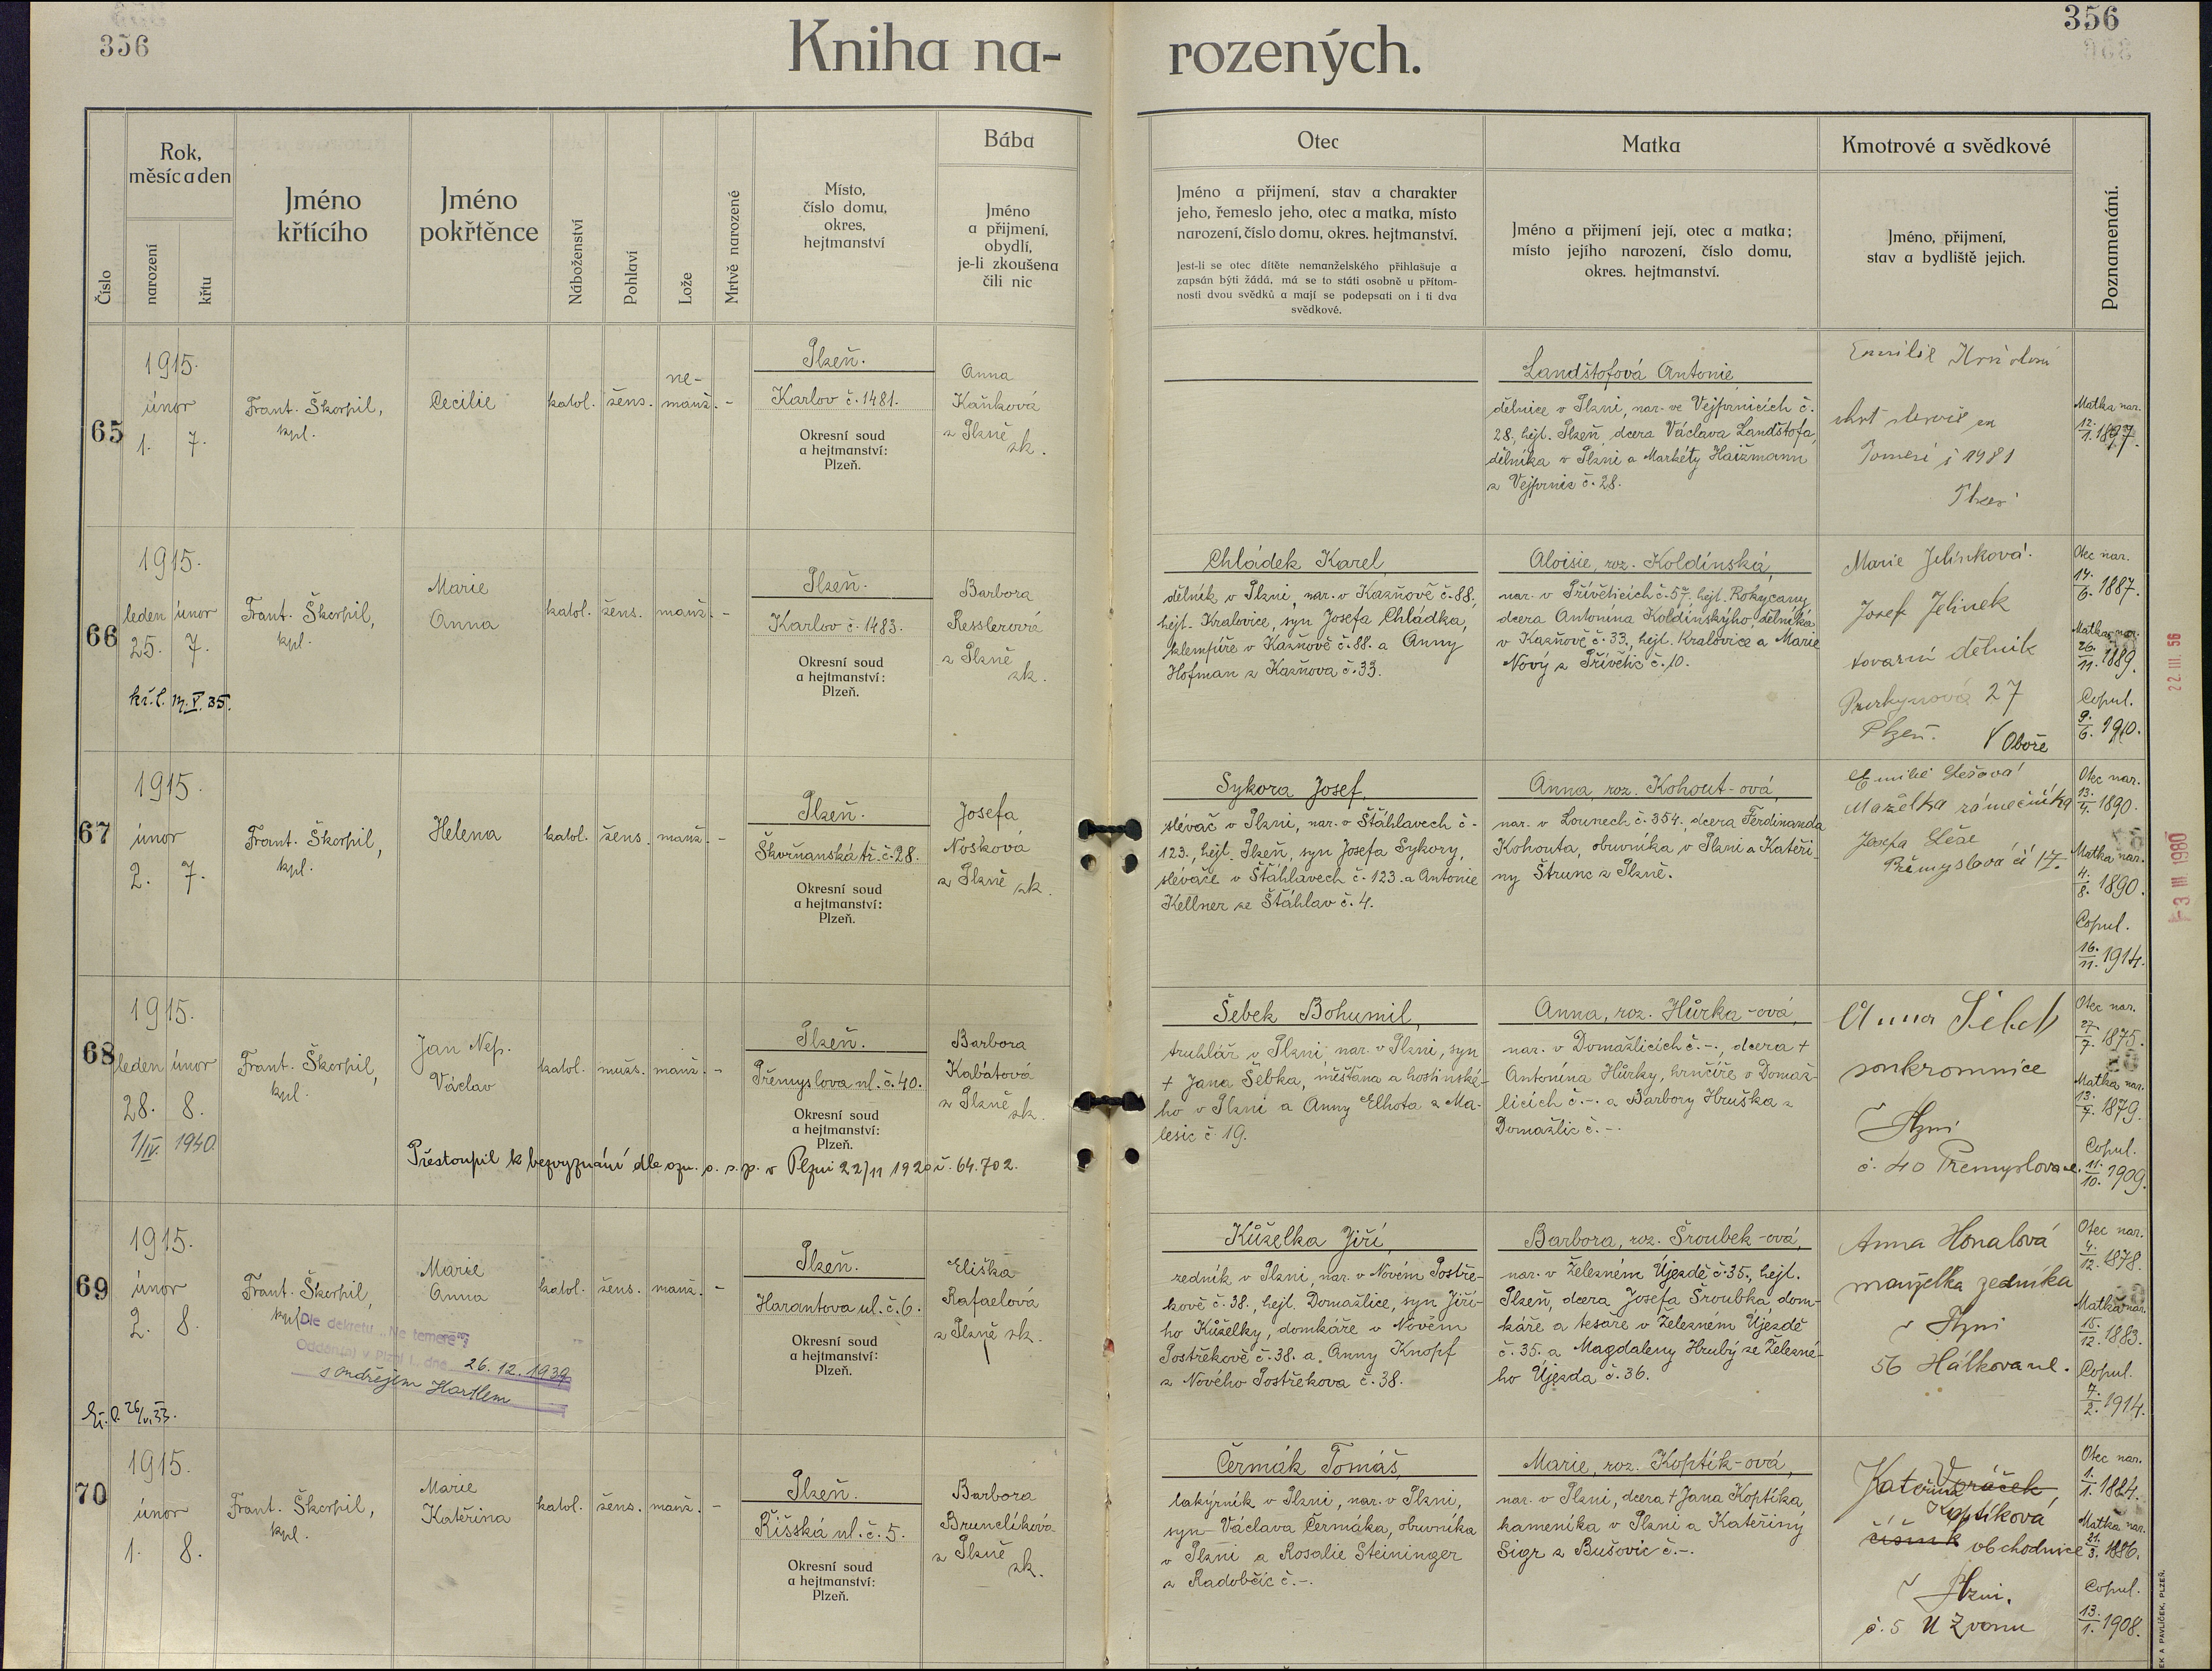 356
356
Kniha na-
rozených.
Číslo
Rok,
měsíc a den
narození
křtu
Jméno
křtícího
Jméno
pokřtěnce
Náboženství
Pohlaví
Lože
Mrtvě narozené
Místo,
číslo domu,
okres,
hejtmanství
Bába
Jméno
a přijmení,
obydlí,
je-li zkoušena
čili nic
Otec
Jméno a přijmení, stav a charakter
jeho, řemeslo jeho, otec a matka, místo
narození, číslo domu, okres. hejtmanství.
Jest-li se otec dítěte nemanželského přihlašuje a
zapsán býti žádá, má se to státi osobně u přítom-
nosti dvou svědků a mají se podepsati on i ti dva
svědkové.
Matka
Jméno a přijmení její, otec a matka;
místo jejího narození, číslo domu,
okres. hejtmanství.
Kmotrové a svědkové
Jméno, přijmení,
stav a bydliště jejich.
Poznamenání.
65
1915.
únor
1. 7.
Frant. Škorpil,
kpl.
Cecilie
katol.
žens.
ne-
manž.
-
Plzeň.
Karlov č. 1481.
Okresní soud
a hejtmanství:
Plzeň.
Anna
Kaňková
z Plzně
zk.
Landštofová Antonie
dělnice v Plzni, nar. ve Vejprnicích č.
28, hejt. Plzeň, dcera Václava Landštofa,
dělníka v Plzni a Markéty Haizmann
z Vejprnic č. 28.
Emilie
1981
Matka nar.
12./1. 1897.
66
1915.
leden únor
25. 7.
kř. l. 17. V. 35.
Frant. Škorpil,
kpl.
Marie
Anna
katol.
žens.
manž.
-
Plzeň.
Karlov č. 1483.
Okresní soud
a hejtmanství:
Plzeň.
Barbora
Resslerová
z Plzně
zk.
Chládek Karel
dělník v Plzni, nar. v Kazňově č. 88,
hejt. Kralovice, syn Josefa Chládka,
klempíře v Kazňově č. 88. a Anny
Hofman z Kazňova č. 33.
Aloisie, roz. Koldinská,
nar. v Přívěticích č. 57. hejt. Rokycany,
dcera Antonína Koldinskýho, dělníka
v Kazňově č. 33., hejt. Kralovice a Marie
Nový z Přívětic č. 10.
Marie Jelínková.
Josef Jelinek
tovarní dělnik
Purkynova 27
Plzeň. V Oboře
Otec nar.
14./6. 1887.
Matka nar.
26./11. 1889.
Copul.
9./6. 1910.
22. III. 56
67
1915.
únor
2. 7.
Frant. Škorpil,
kpl.
Helena
katol.
žens.
manž.
-
Plzeň.
Škvrňanská tř. č. 28.
Okresní soud
a hejtmanství:
Plzeň.
Josefa
Nosková
z Plzně zk.
Sykora Josef,
slévač v Plzni, nar. v Šťáhlavech č.
123., hejt. Plzeň, syn Josefa Sykory,
slévače v Šťáhlavech č. 123. a Antonie
Kellner ze Šťáhlav č. 4.
Anna, roz. Kohout-ová,
nar. v Lounech č. 354., dcera Ferdinanda
Kohouta, obuvníka v Plzni a Kateři-
ny Štrunc z Plzně.
Mažèlka zámečníka
Josefa
Přemyslova čí 17.
Otec nar.
13./4. 1890.
Matka nar.
4./8. 1890.
Copul.
16./11. 1914.
-3 III 1980
68
1915.
leden únor
28. 8.
1/IV. 1940.
Frant. Škorpil,
kpl.
Jan Nep.
Václav
katol.
mužs.
manž.
-
Plzeň.
Přemyslova ul. č. 40.
Okresní soud
a hejtmanství:
Plzeň.
Barbora
Kabátová
z Plzně
zk.
Přestoupil k bezvyznání dle ozn. o. s. p. v Plzni 22/11 1920 č. 64.702.
Šebek Bohumil,
truhlář v Plzni, nar. v Plzni, syn
+ Jana Šebka, měšťana a hostinské-
ho v Plzni a Anny Elhota z Ma-
lesic č. 19.
Anna, roz. Hůrka-ová,
nar. v Domažlicích č. -., dcera +
Antonína Hůrky, hrnčíře v Domaž-
licích č. -. a Barbory Hruška z
Domažlic č. -.
Anna Šebek
soukromnice
v Plzni
č. 40 Přemyslova ul.
Otec nar.
27./7. 1875.
Matka nar.
13./7. 1879.
Copul.
11./10. 1909.
69
1915.
únor
2. 8.
Kř. l. 26/VI. 33.
Frant. Škorpil,
kpl.
Dle dekretu „Ne temere“
Oddán(a) v Plzni I., dne 26. 12. 1939
s Ondřejem Hartlem
Marie
Anna
katol.
žens.
manž.
-
Plzeň.
Harantova ul. č. 6.
Okresní soud
a hejtmanství:
Plzeň.
Eliška
Rafaelová
z Plzně zk.
Kůželka Jiří,
zedník v Plzni, nar. v Novém Postře-
kově č. 38., hejt. Domažlice, syn Jiří-
ho Kůželky, domkáře v Novém
Postřekově č. 38. a Anny Knopf
z Nového Postřekova č. 38.
Barbora, roz. Šroubek-ová,
nar. v Železném Újezdě č. 35., hejt.
Plzeň, dcera Josefa Šroubka, dom-
káře a tesaře v Železném Újezdě
č. 35. a Magdaleny Hrubý ze Železné-
ho Újezda č. 36.
Anna Honalová
manželka zedníka
v Plzni
56 Hálkova ul.
Otec nar.
4./12. 1878.
Matka nar.
15./12. 1883.
Copul.
7./2. 1914.
70
1915.
únor
1. 8.
Frant. Škorpil,
kpl.
Marie
Kateřina
katol.
žens.
manž.
-
Plzeň.
Říšská ul. č. 5.
Okresní soud
a hejtmanství:
Plzeň.
Barbora
Brunclíková
z Plzně
zk.
Čermák Tomáš,
lakýrník v Plzni, nar. v Plzni,
syn Václava Čermáka, obuvníka
v Plzni a Rosalie Steininger
z Radobčic č. -.
Marie, roz. Koptík-ová,
nar. v Plzni, dcera + Jana Koptíka,
kameníka v Plzni a Kateřiny
Sigr z Bušovic č. -.
Kateřina Voráček
Koptíková
číšník obchodnice
v Plzni.
č. 5 U Zvonu
Otec nar.
1./1. 1884.
Matka nar.
21./3. 1886.
Copul.
13./1. 1908.
EK A PAVLÍČEK, PLZEŇ.